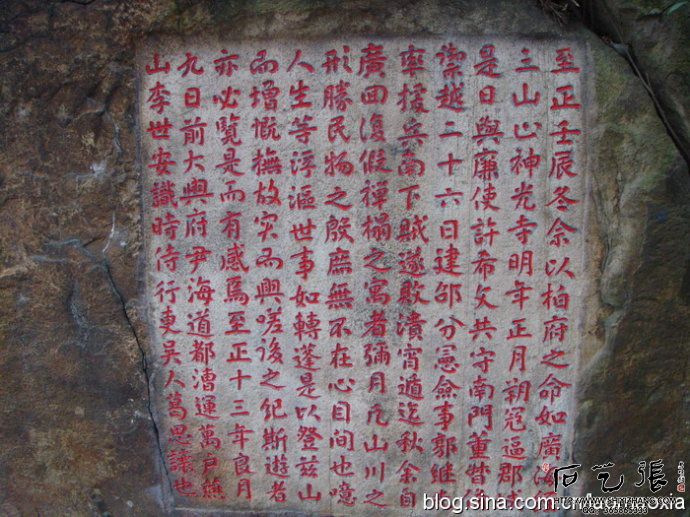 至正壬辰冬余以柏府之命如廣海
三山止神光寺明年正月朔冦逼郡
是日與廉使許希文共守南門重
禦越二十六日建邵分憲僉事郭継
率援兵南下賊遂敗潰宵遁迄秋余自
廣回復假禪榻之寓者彌月凡山川之
形勝民物之殷庶無不在心目間也噫
人生等浮漚世事如轉蓬是以登兹山
而增慨撫故实而興嗟後之紀斯遊者
亦必覽是而有感焉至正十三年良月
九日前大興府尹海道都漕運萬户燕
山李世安識時侍行吏吳人葛思讓也
石艺張
blog.sina.com.cn/